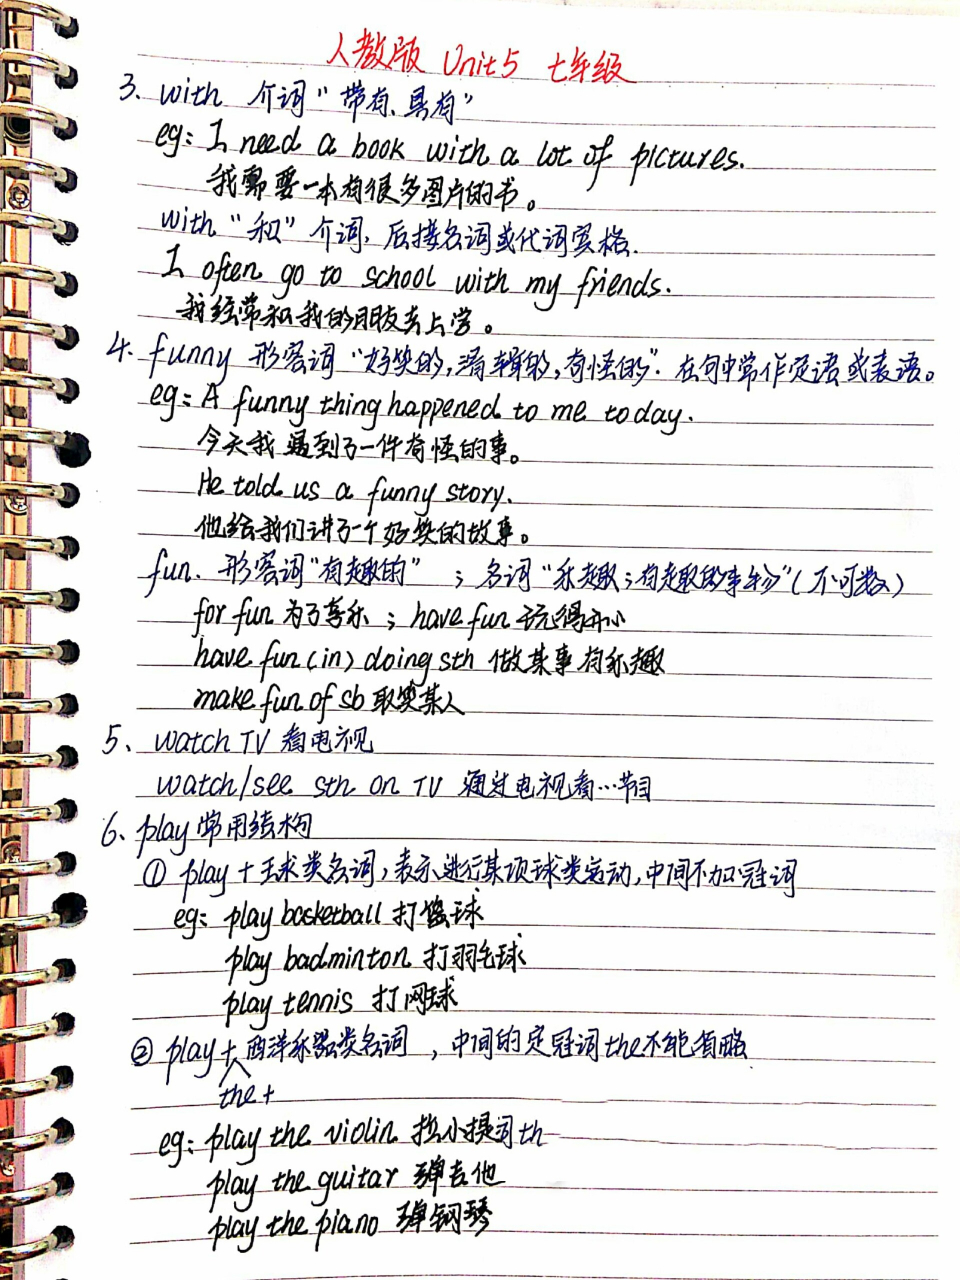 人教版 Unit5 七年级
3、with 介词“带有、具有”
eg: I need a book with a lot of pictures.
我需要一本有很多图片的书。
with “和” 介词, 后接名词或代词宾格.
I often go to school with my friends.
我经常和我的朋友去上学。
4. funny 形容词 “好笑的, 滑稽的, 奇怪的”. 在句中常作定语或表语。
eg: A funny thing happened to me today.
今天我遇到了一件奇怪的事。
He told us a funny story.
他给我们讲了一个好笑的故事。
fun. 形容词“有趣的” ; 名词“乐趣;有趣的事物”(不可数)
for fun 为了享乐 ; have fun 玩得开心
have fun (in) doing sth 做某事有乐趣
make fun of sb 取笑某人
5、watch TV 看电视
watch/see sth on TV 通过电视看…节目
6、play 常用结构
① play + 球类名词, 表示进行某项球类运动, 中间不加冠词
eg: play basketball 打篮球
play badminton 打羽毛球
play tennis 打网球
② play + 西洋乐器类名词 , 中间的定冠词the不能省略
the +
eg: play the violin 拉小提词th
play the guitar 弹吉他
play the piano 弹钢琴